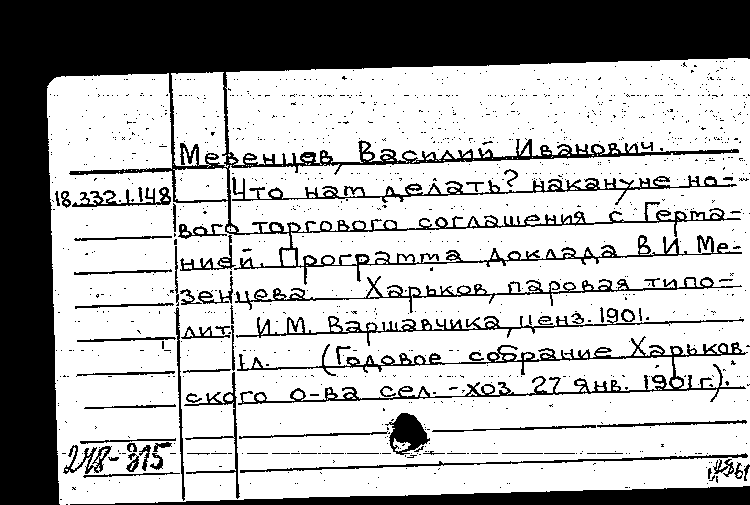 Мезенцев, Василий Иванович.
18.332.1.148 Что нам делать? накануне но-
вого торгового соглашения с Герма-
нией. Программа доклада В.И. Ме-
зенцева. Харьков, паровая типо-
лит. И.М. Варшавчика, ценз. 1901.
1л. (Годовое собрание Харьков-
ского о-ва сел.-хоз. 27 янв. 1901 г.).
248-315